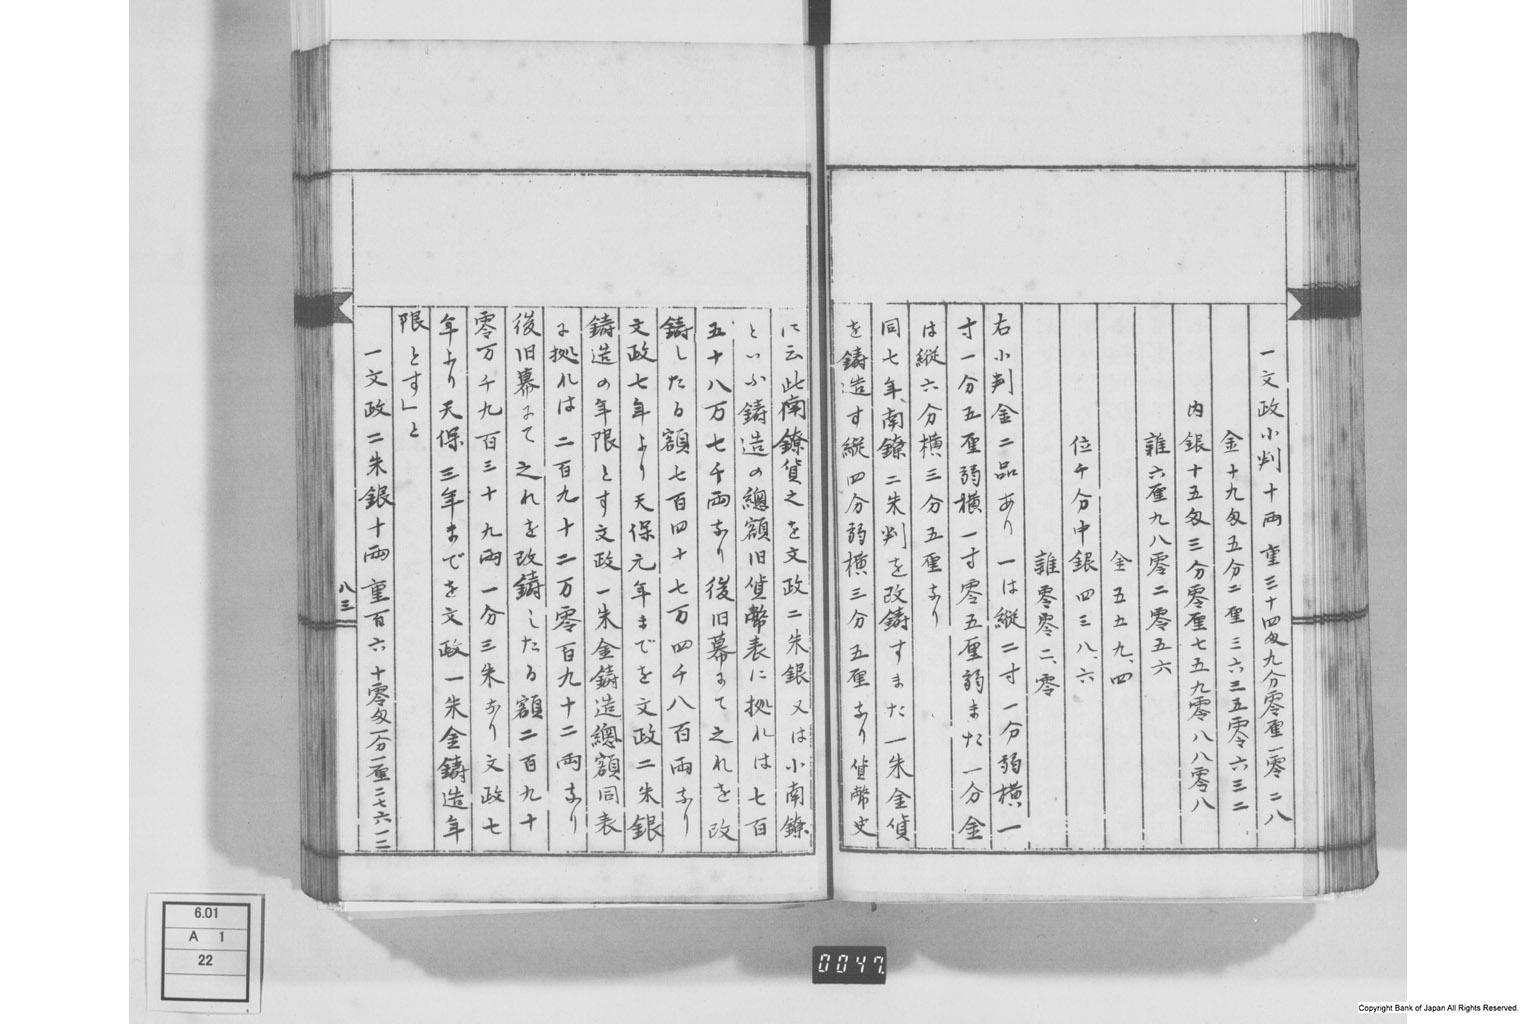 一文政小判十両重三十四匁九分零厘一零二八
金十九匁五分二厘三六三五零六三二
内銀十五匁三分零厘七五九零八八零八
雑六厘九八零二零五六
金五五九、四
位千分中銀四三八、六
雑零零二、零
右小判金二品あり一は縦二寸一分弱横一
寸一分五厘弱横一寸零五厘弱また一分金
は縦六分横三分五厘なり
同七年、南鐐二朱判を改鋳すまた一朱金貨
を鋳造す縦四分弱横三分五厘なり貨幣史
に云此南鐐貨之を文政二朱銀又は小南鐐
といふ鋳造の總額旧貨幣表に拠れは七百
五十八万七千両なり後旧幕にて之れを改
鋳したる額七百四十七万四千八百両なり
文政七年より天保元年までを文政二朱銀
鋳造の年限とす文政一朱金鋳造總額同表
に拠れは二百九十二万零百九十二両なり
後旧幕にて之れを改鋳したる額二百九十
零万千九百三十九両一分三朱なり文政七
年より天保三年までを文政一朱金鋳造年
限とす」と
一文政二朱銀十両重百六十零匁一分一厘二七六一二
八三
6.01
A 1
22
0047.
Copyright Bank of Japan All Rights Reserved.